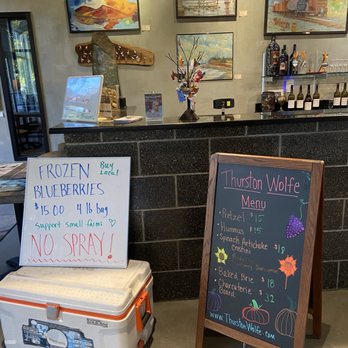 FROZEN
BLUEBERRIES
Buy
Local!
$15.00 4 lb bag
support small farms
NO SPRAY!
Thurston Wolfe
Menu
• Pretzel $15
• Hummus $15
• Spinach Artichoke $18
• Baked Brie $18
• Charcuterie $32
Board
www.ThurstonWolfe.com